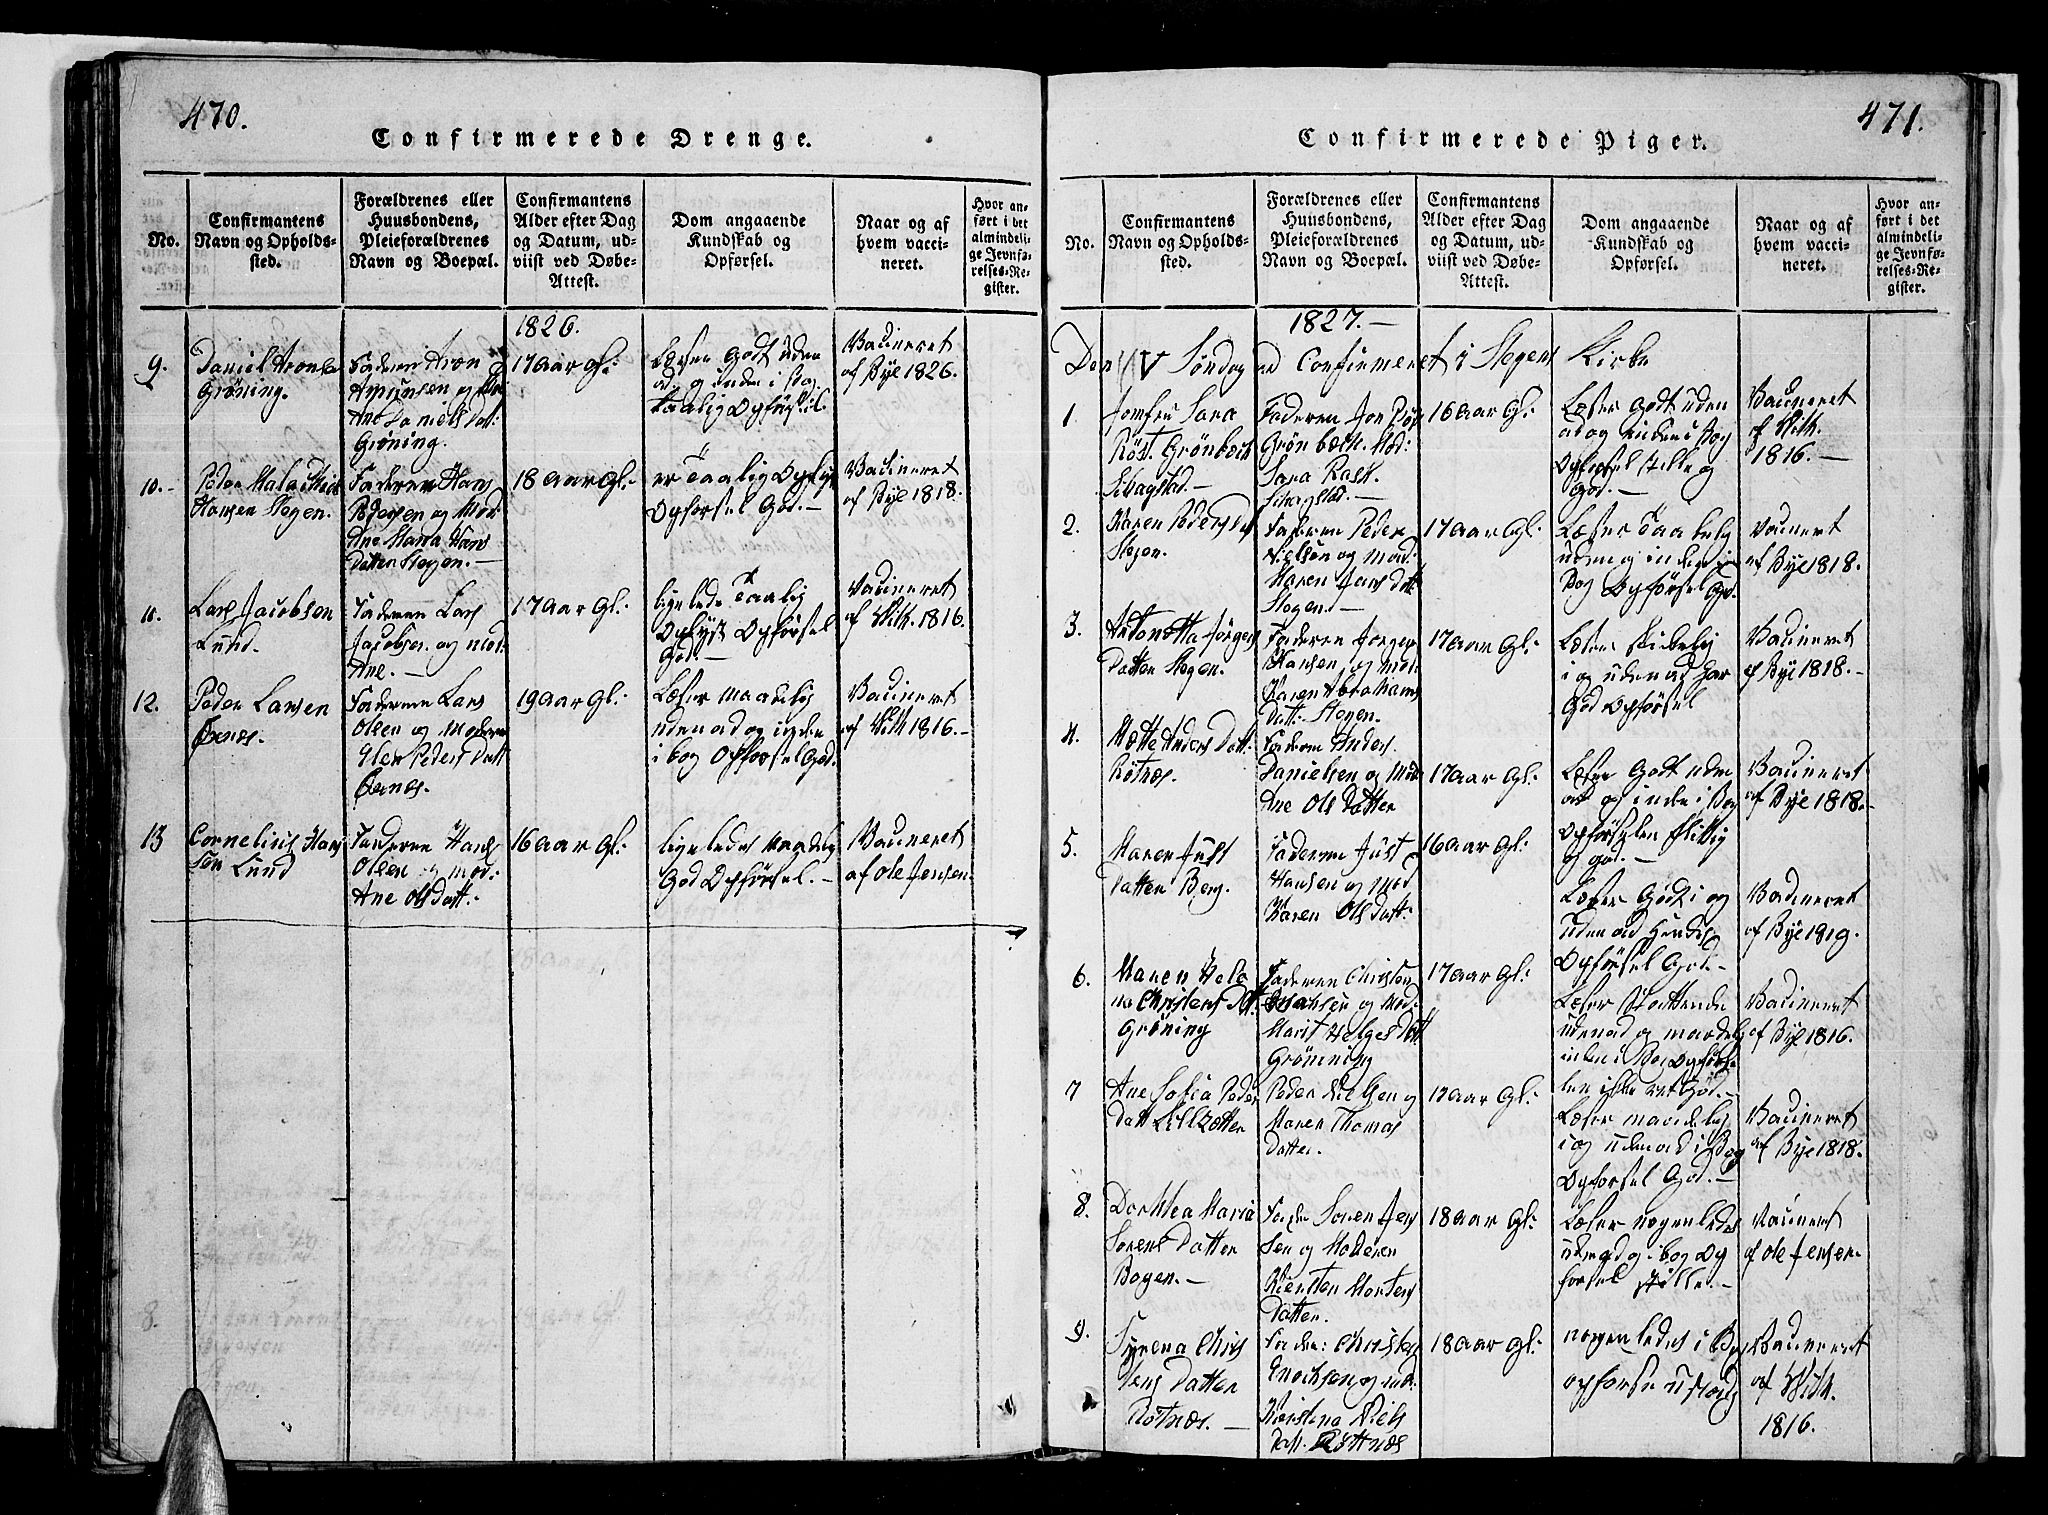 470.
Confirmerede Drenge.
No.
Confirmantens
Navn og Opholds-
sted.
Forældrenes eller
Huusbondens,
Pleieforældrenes
Navn og Boepæl.
Confirmantens
Alder efter Dag
og Datum, ud-
viist ved Døbe-
Attest.
Dom angaaende
Kundskab og
Opførsel.
Naar og af
hvem vacci-
neret.
Hvor an-
ført i det
almindeli-
ge Jevnfø-
relses-Re-
gister.
1826.
9.
Daniel Aronsen
Grøning.
Faderen Aron
og
Ane Daniels Dat:
Grøning.
17 Aar Gl:
Læser Godt uden
ad og inde i Bog
taalig Opførsel.
Vacineret
af Bye 1826.
10.-
Peder
Hansen Stegen.
Faderen Hans
Pedersen og Mod:
Ane Maria Hans
Datter Stegen.-
18 Aar Gl:
er Taalig Oplyst
Opførsel God.-
Vacineret
af Bye 1818.
11.
Lars Jacobsen
Lund.
Faderen Lars
Jacobsen og mod:
Ane.-
17 Aar Gl:
ligelede Taalig
Oplyst Opførsel
God.-
Vacineret
af With. 1816.
12.
Peder Larsen
Øxnes.
Faderen Lars
Olsen og Moderen
Elen Peders Datt
Øxnes.
19 Aar Gl:
Læser Maadelig
udenad og inden
i bog Opførsel God.
Vacineret
af With 1816.-
13
Cornelius Han
sen Lund
Faderen Hans
Olsen og mod:
Ane Ols Datt:
16 Aar Gl:
ligeledes Maadelig
God Opførsel.-
Vacineret
af Ole Jensen
471.
Confirmerede Piger.
No.
Confirmantens
Navn og Opholds-
sted.
Forældrenes eller
Huusbondens,
Pleieforældrenes
Navn og Boepæl.
Confirmantens
Alder efter Dag
og Datum, ud-
viist ved Døbe-
Attest.
Dom angaaende
Kundskab og
Opførsel.
Naar og af
hvem vacci-
neret.
Hvor an-
ført i det
almindeli-
ge Jevnfø-
relses-Re-
gister.
1827.-
Den Søndag Confirmeret i Stegens Kirke
1.
Jomfru Sara
Röst. Grönbech
Skagstad.-
Faderen Jon
Grönbech. Mod:
Sara Rask.
Skagstad.-
16 Aar Gl:
Læser Godt uden
ad og inden i Bog
Opførsel stille og
God.-
Vacineret
af With.
1816.-
2.
Karen Peders Dat
Stegen.
Faderen Peder
Nielsen og Mod:
Maren Jans Dat
Stegen.-
17 Aar Gl:
Læser Taalelig
uden og inden i
Bog Opførsel God.
Vacineret
af Bye 1818.
3.
Antonetta Jörgens
Datter Stegen.
Faderen Jorgen
Hansen og Mod:
Karen Abrahams
Datt: Stegen.
17 Aar Gl:
Læser Skikelig
i og udenad har
God Opførsel
Vacineret
af Bye 1818.-
4.
Mette Anders Datt:
Røtnes.
Faderen Anders
Danielsen og Mod
Ane Ols Datter
17 Aar Gl:
Læser Godt uden
ad og inde i Bog
Opførselen flittig
og god.-
Vacineret
af Bye 1818.-
5.
Maren Just
Datter Berg.
Faderen Just
Hansen og Mod
Karen Ols Datt:
16 Aar Gl:
Læser Godt i og
uden ad Hendes
Opførsel God.-
Vacineret
af Bye 1819.
6.
Maren Hele
na Christens Dtt.
Grøning
Faderen Christen
og Mod:
Marit Helges Datt
Grønning
17 Aar Gl:
Læser Støttende
udenad og maadelig
inden i Bog Opførse
len ikke ret God.-
Vacineret
af Bye 1816.
7
Ane Sofia Peder
Datt Lillzetter
Peder Nielsen og
Maren Thomas
Datter.
17 Aar Gl:
Læser maadelig
i og udenad i Bog
Opførsel God.-
Vacineret
af Bye 1818.
8.
Dorthea Maria
Sørens Datter
Bogen.-
Fader Soren Jen
sen og Moderen
Kiersten Mortens
Datter.
18 Aar Gl:
Læser nogenledes
udenad og i bog Op
førsel stille.-
Vacineret
af Ole Jensen
9.
Syrena Chris
tens Datter
Røtnæs.-
Fader: Christen
Enochsen og mod:
Kirstina Niels
Datt. Røttnæs
18 Aar Gl:
nogenledes i Bog
opførse ustadig
Vacineret
af With.
1816.